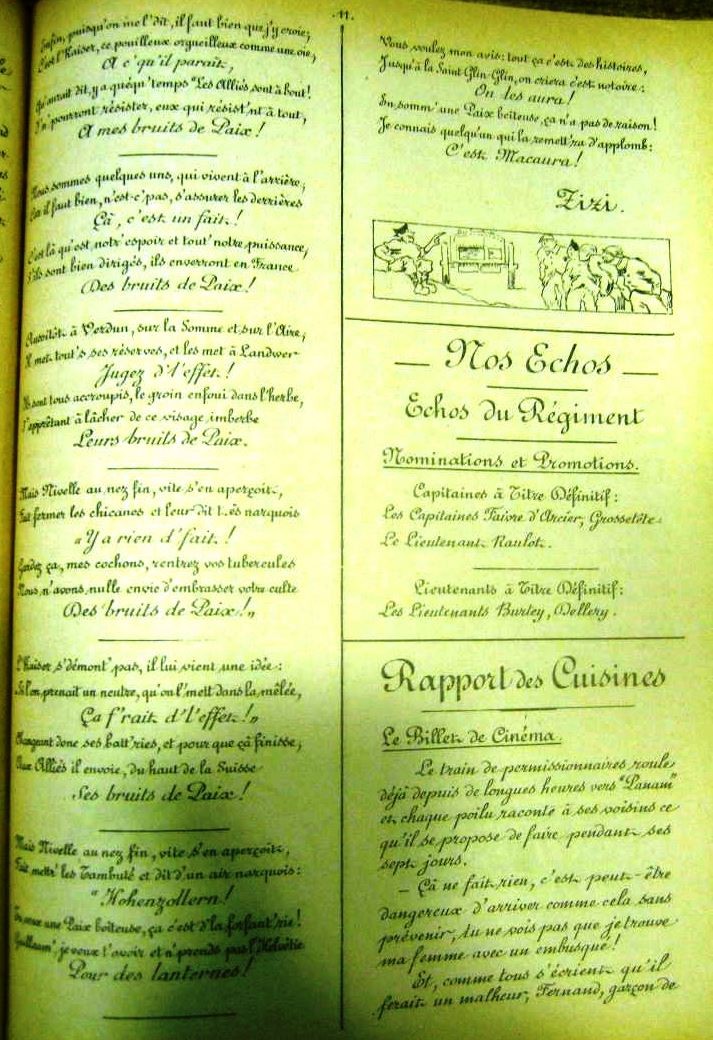 11.
Enfin, puisqu'on me l'dit, il faut bien que j'y croie;
C'est l'Kaiser, ce pouilleux orgueilleux comme une oie,
A c'qu'il parait,
Qu'aurait dit, y a quéqu'temps "Les Alliés sont à bout!
I'n'pourront résister, eux qui résist'nt à tout,
A mes bruits de Paix!
Nous sommes quelques uns, qui vivent à l'arrière;
Car il faut bien, n'est-c'pas, s'assurer les derrières
Çà, c'est un fait!
C'est là qu'est notr'espoir et tout' notre puissance,
S'ils sont bien dirigés, ils enverront en France
Des bruits de Paix!
Aussitôt à Verdun, sur la Somme et sur l'Aire,
Il met tout's ses réserves, et les met à Landwer
Jugez d'l'effet!
Ils sont tous accroupis, le groin enfoui dans l'herbe,
S'apprêtant à lâcher de ce visage imberbe
Leurs bruits de Paix.
Mais Nivelle au nez fin, vite s'en aperçoit,
Fait fermer les chicanes et leur dit très narquois
"Y a rien d'fait!
Gardez ça, mes cochons, rentrez vos tubercules
Nous n'avons nulle envie d'embrasser votre culte
Des bruits de Paix!"
L'Kaiser s'démont'pas, il lui vient une idée:
Si l'on prenait un neutre, qu'on l'mett dans la mêlée,
Ça f'rait d'l'effet!"
Changeant donc ses batt'ries, et pour que çà finisse,
Aux Alliés il envoie, du haut de la Suisse
Ses bruits de Paix!
Mais Nivelle au nez fin, vite s'en aperçoit,
Fait mettr' les Tambuté et dit d'un air narquois:
"Hohenzollern!
Tu veux une Paix boiteuse, ça c'est d'la forfant'rie!
Guillaum', je veux t'avoir et n'prends pas l'Helvétie
Pour des lanternes!
Vous voulez mon avis: tout ça c'est des histoires,
Jusqu'à la Saint Glin-Glin, on criera c'est notoire:
On les aura!
En somm' une Paix boiteuse, ça n'a pas de raison!
Je connais quelqu'un qui la remett'ra d'applomb:
C'est Macaura!
Zizi.
Nos Echos
Echos du Régiment
Nominations et Promotions.
Capitaines à Titre Définitif:
Les Capitaines Faivre d'Arcier, Grosseteté
Le Lieutenant Raulot.
Lieutenants à Titre Définitif:
Les Lieutenants Burley, Dellery.
Rapport des Cuisines
Le Billet de Cinéma.
Le train de permissionnaires roule
déjà depuis de longues heures vers "Panam"
et chaque poilu raconte à ses voisins ce
qu'il se propose de faire pendant ses
sept jours.
— Çà ne fait rien, c'est peut-être
dangereux d'arriver comme cela sans
prévenir, tu ne vois pas que je trouve
ma femme avec un embusqué!
Et, comme tous s'écrient qu'il
ferait un malheur, Fernand, garçon de